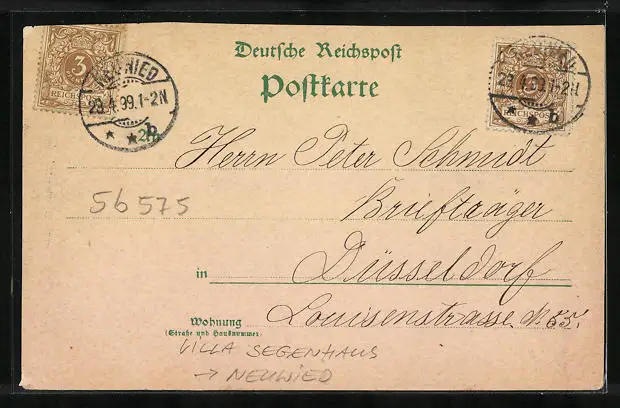 Deutsche Reichspost
Postkarte
3
REICHSPOST
NEUWIED
29.4.99.1-2N
* * b
3
REICHSPOST
29.4.99.1-2N
* * b
Herrn Peter Schmidt
Briefträger
56575
in Düsseldorf
Wohnung Louisenstrasse No 55.
(Straße und Hausnummer)
VILLA SEGENHAUS
→ NEUWIED